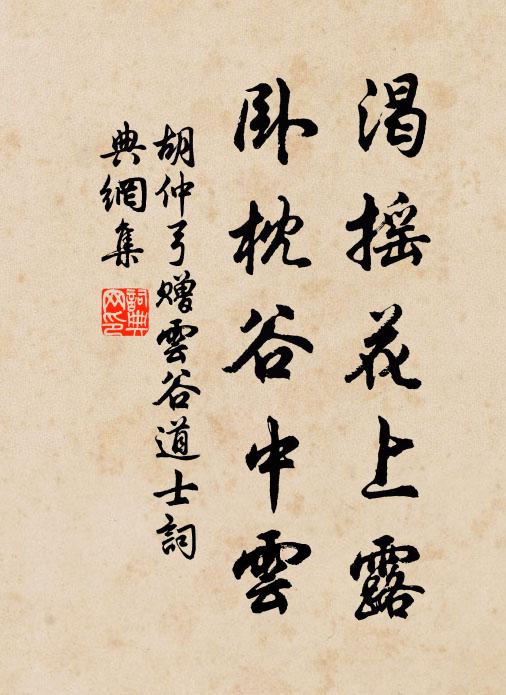 渴摇花上露
卧枕谷中雲
胡仲弓赠雲谷道士詞
典網集
詞典网印